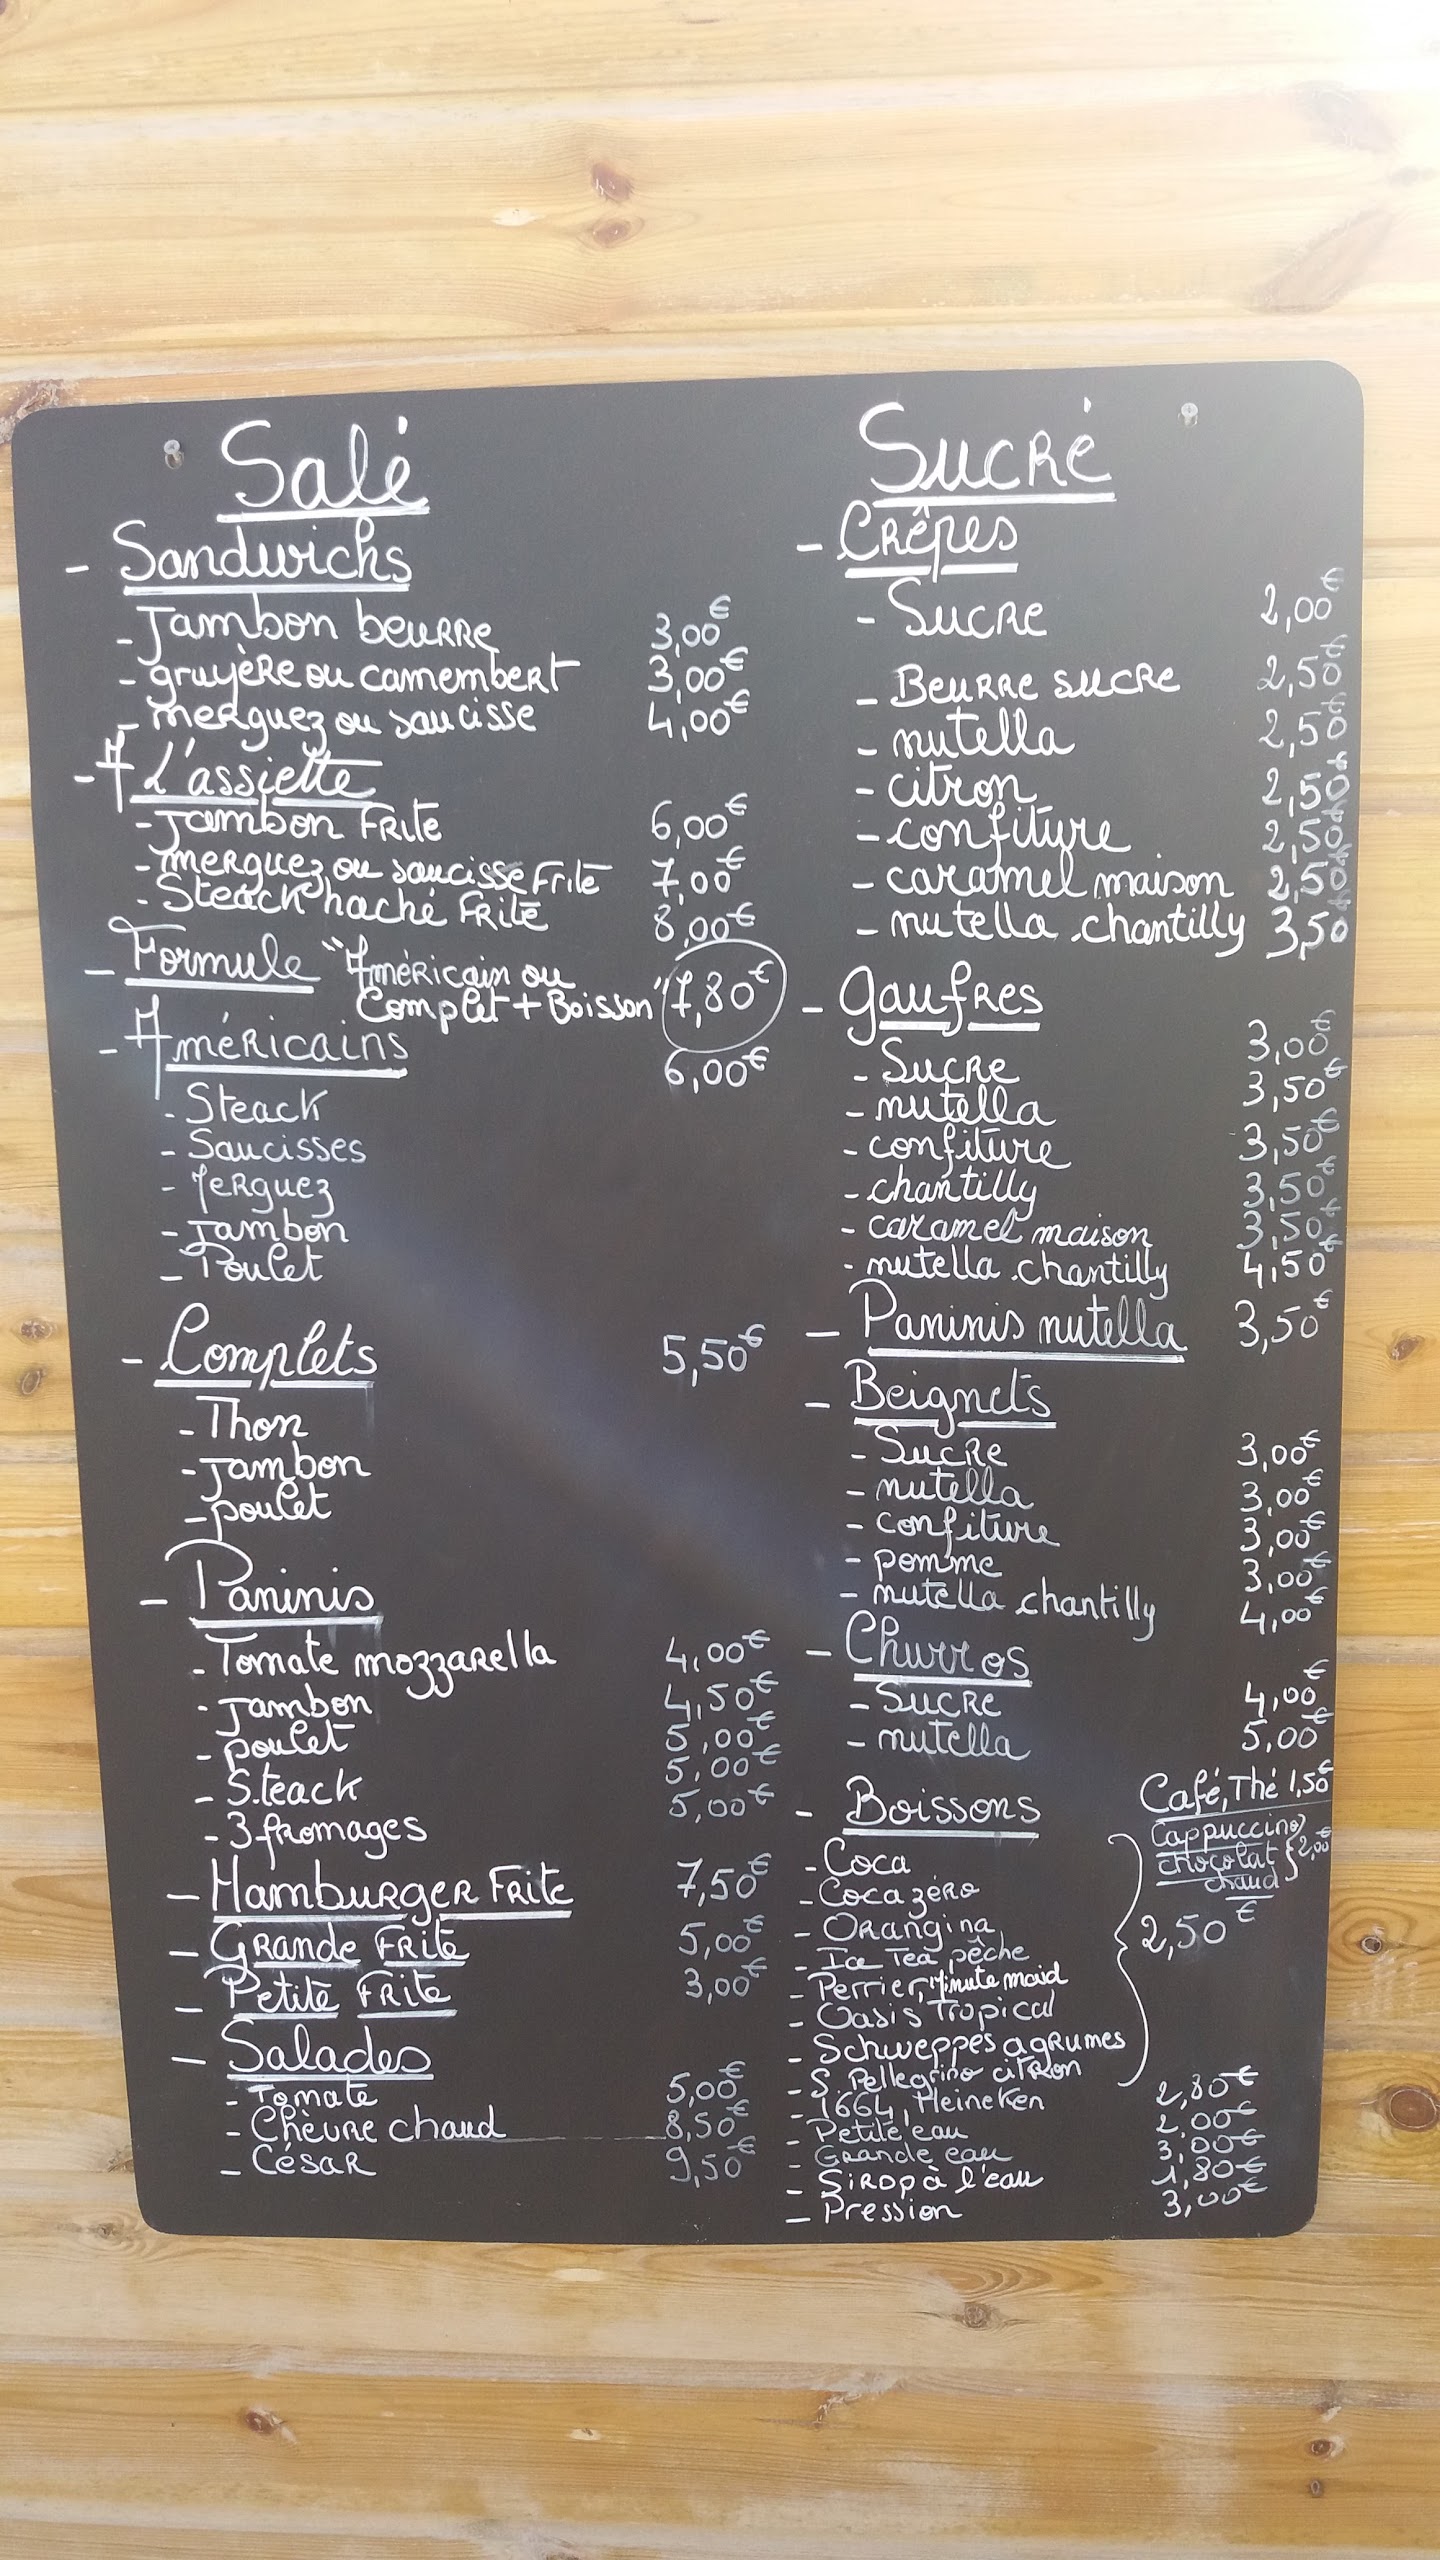 Salé
- Sandwichs
- Jambon beurre 3,00€
- gruyère ou camembert 3,00€
- merguez ou saucisse 4,00€
- A L'assiette
- Jambon Frite 6,00€
- merguez ou saucisse Frite 7,00€
- Steack haché Frite 8,00€
- Formule "Américain ou
Complet + Boisson" 7,80€
- Américains 6,00€
- Steack
- Saucisses
- Merguez
- Jambon
- Poulet
- Complets 5,50€
- Thon
- Jambon
- poulet
- Paninis
- Tomate mozzarella 4,00€
- Jambon 4,50€
- poulet 5,00€
- Steack 5,00€
- 3 fromages 5,00€
- Hamburger Frite 7,50€
- Grande Frite 5,00€
- Petite Frite 3,00€
- Salades
- Tomate 5,00€
- Chèvre chaud 8,50€
- César 9,50€
Sucré
- Crêpes
- Sucre 2,00€
- Beurre sucre 2,50€
- nutella 2,50€
- citron 2,50€
- confiture 2,50€
- caramel maison 2,50€
- nutella chantilly 3,50€
- gaufres
- Sucre 3,00€
- nutella 3,50€
- confiture 3,50€
- chantilly 3,50€
- caramel maison 3,50€
- nutella chantilly 4,50€
- Paninis nutella 3,50€
- Beignets
- Sucre 3,00€
- nutella 3,00€
- confiture 3,00€
- pomme 3,00€
- nutella chantilly 4,00€
- Churros
- Sucre 4,00€
- nutella 5,00€
- Boissons
Café, Thé 1,50€
Cappuccino
chocolat } 2,00€
chaud
- Coca
- Coca zéro
- Orangina
- Ice Tea pêche
- Perrier, Minute maid
- Oasis Tropical
- Schweppes agrumes
- S. Pellegrino citron
2,50€
- 1664, Heineken 2,80€
- Petite eau 2,00€
- Grande eau 3,00€
- Sirop à l'eau 1,80€
- Pression 3,00€